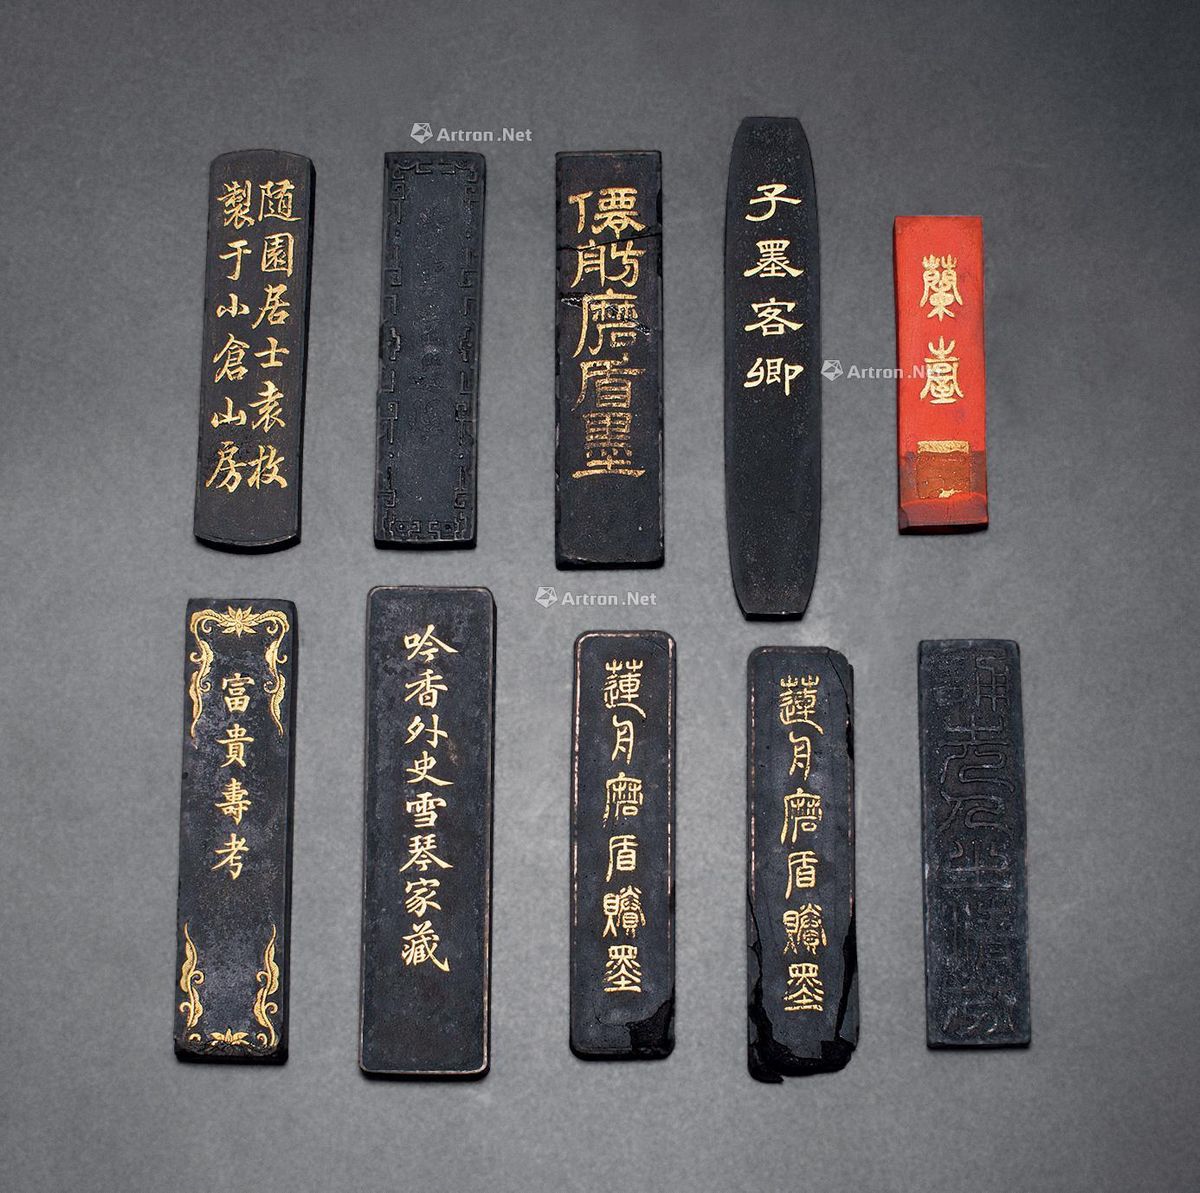 Artron.Net
隨園居士袁枚
製于小倉山房
僊舫磨盾墨
子墨客卿
蘭臺
Artron.Net
Artron.Net
富貴壽考
吟香外史雪琴家藏
蓮舟磨盾賸墨
蓮舟磨盾賸墨